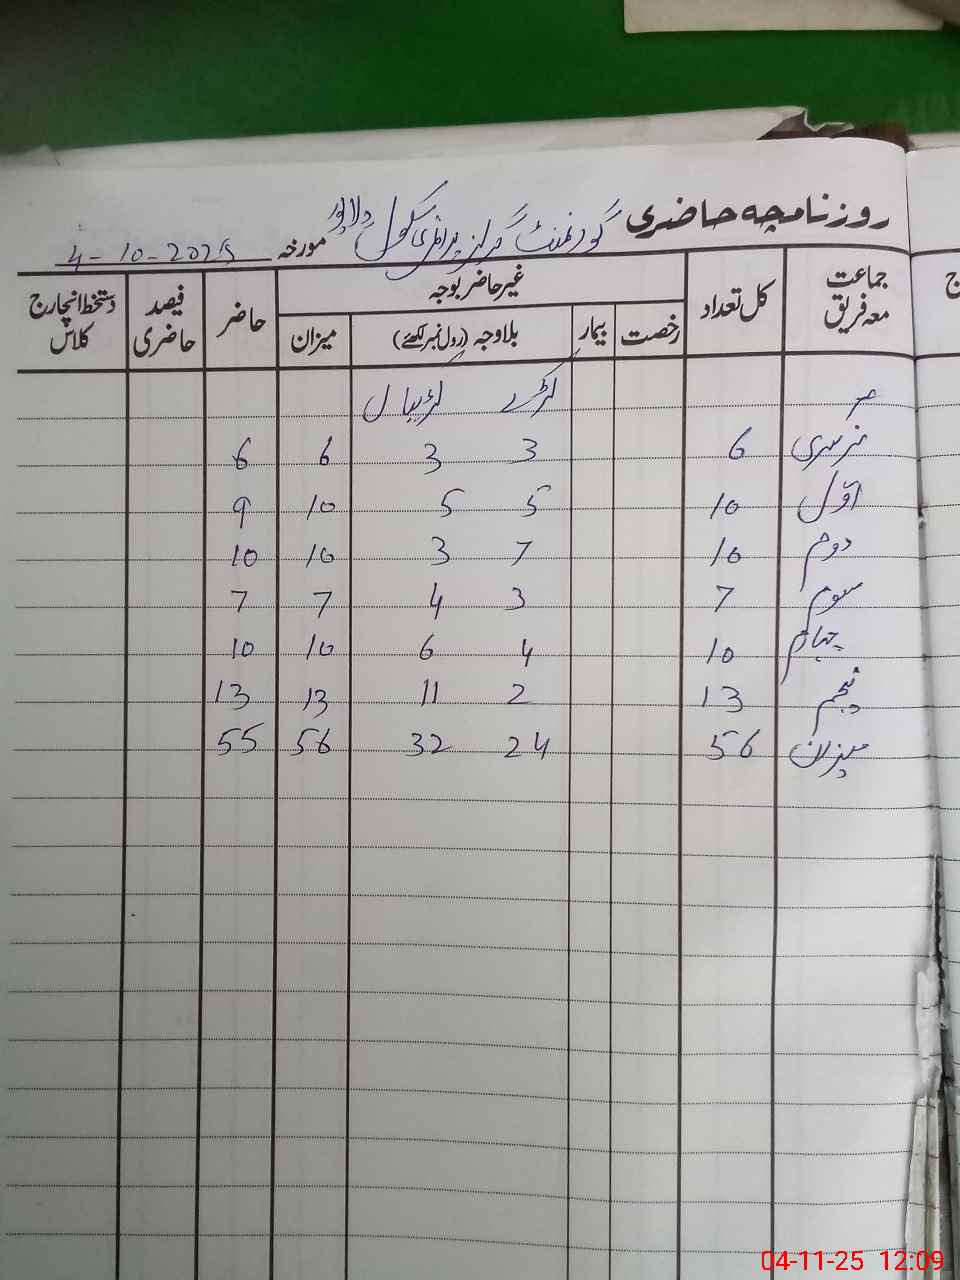 روزنامچہ حاضری گورنمنٹ گرلز پرائمری سکول دلاور مورخہ 4-10-2025
جماعت معہ فریق کل تعداد غیر حاضر بوجہ حاضر فیصد حاضری دستخط انچارج کلاس
رخصت بیمار بلاوجہ (رول نمبر لکھئے) میزان
لڑکے لڑکیاں
نرسری 6 3 3 6 6
اول 10 5 5 10 9
دوم 10 7 3 10 10
سوم 7 3 4 7 7
چہارم 10 4 6 10 10
پنجم 13 2 11 13 13
میزان 56 24 32 56 55
04-11-25 12:09